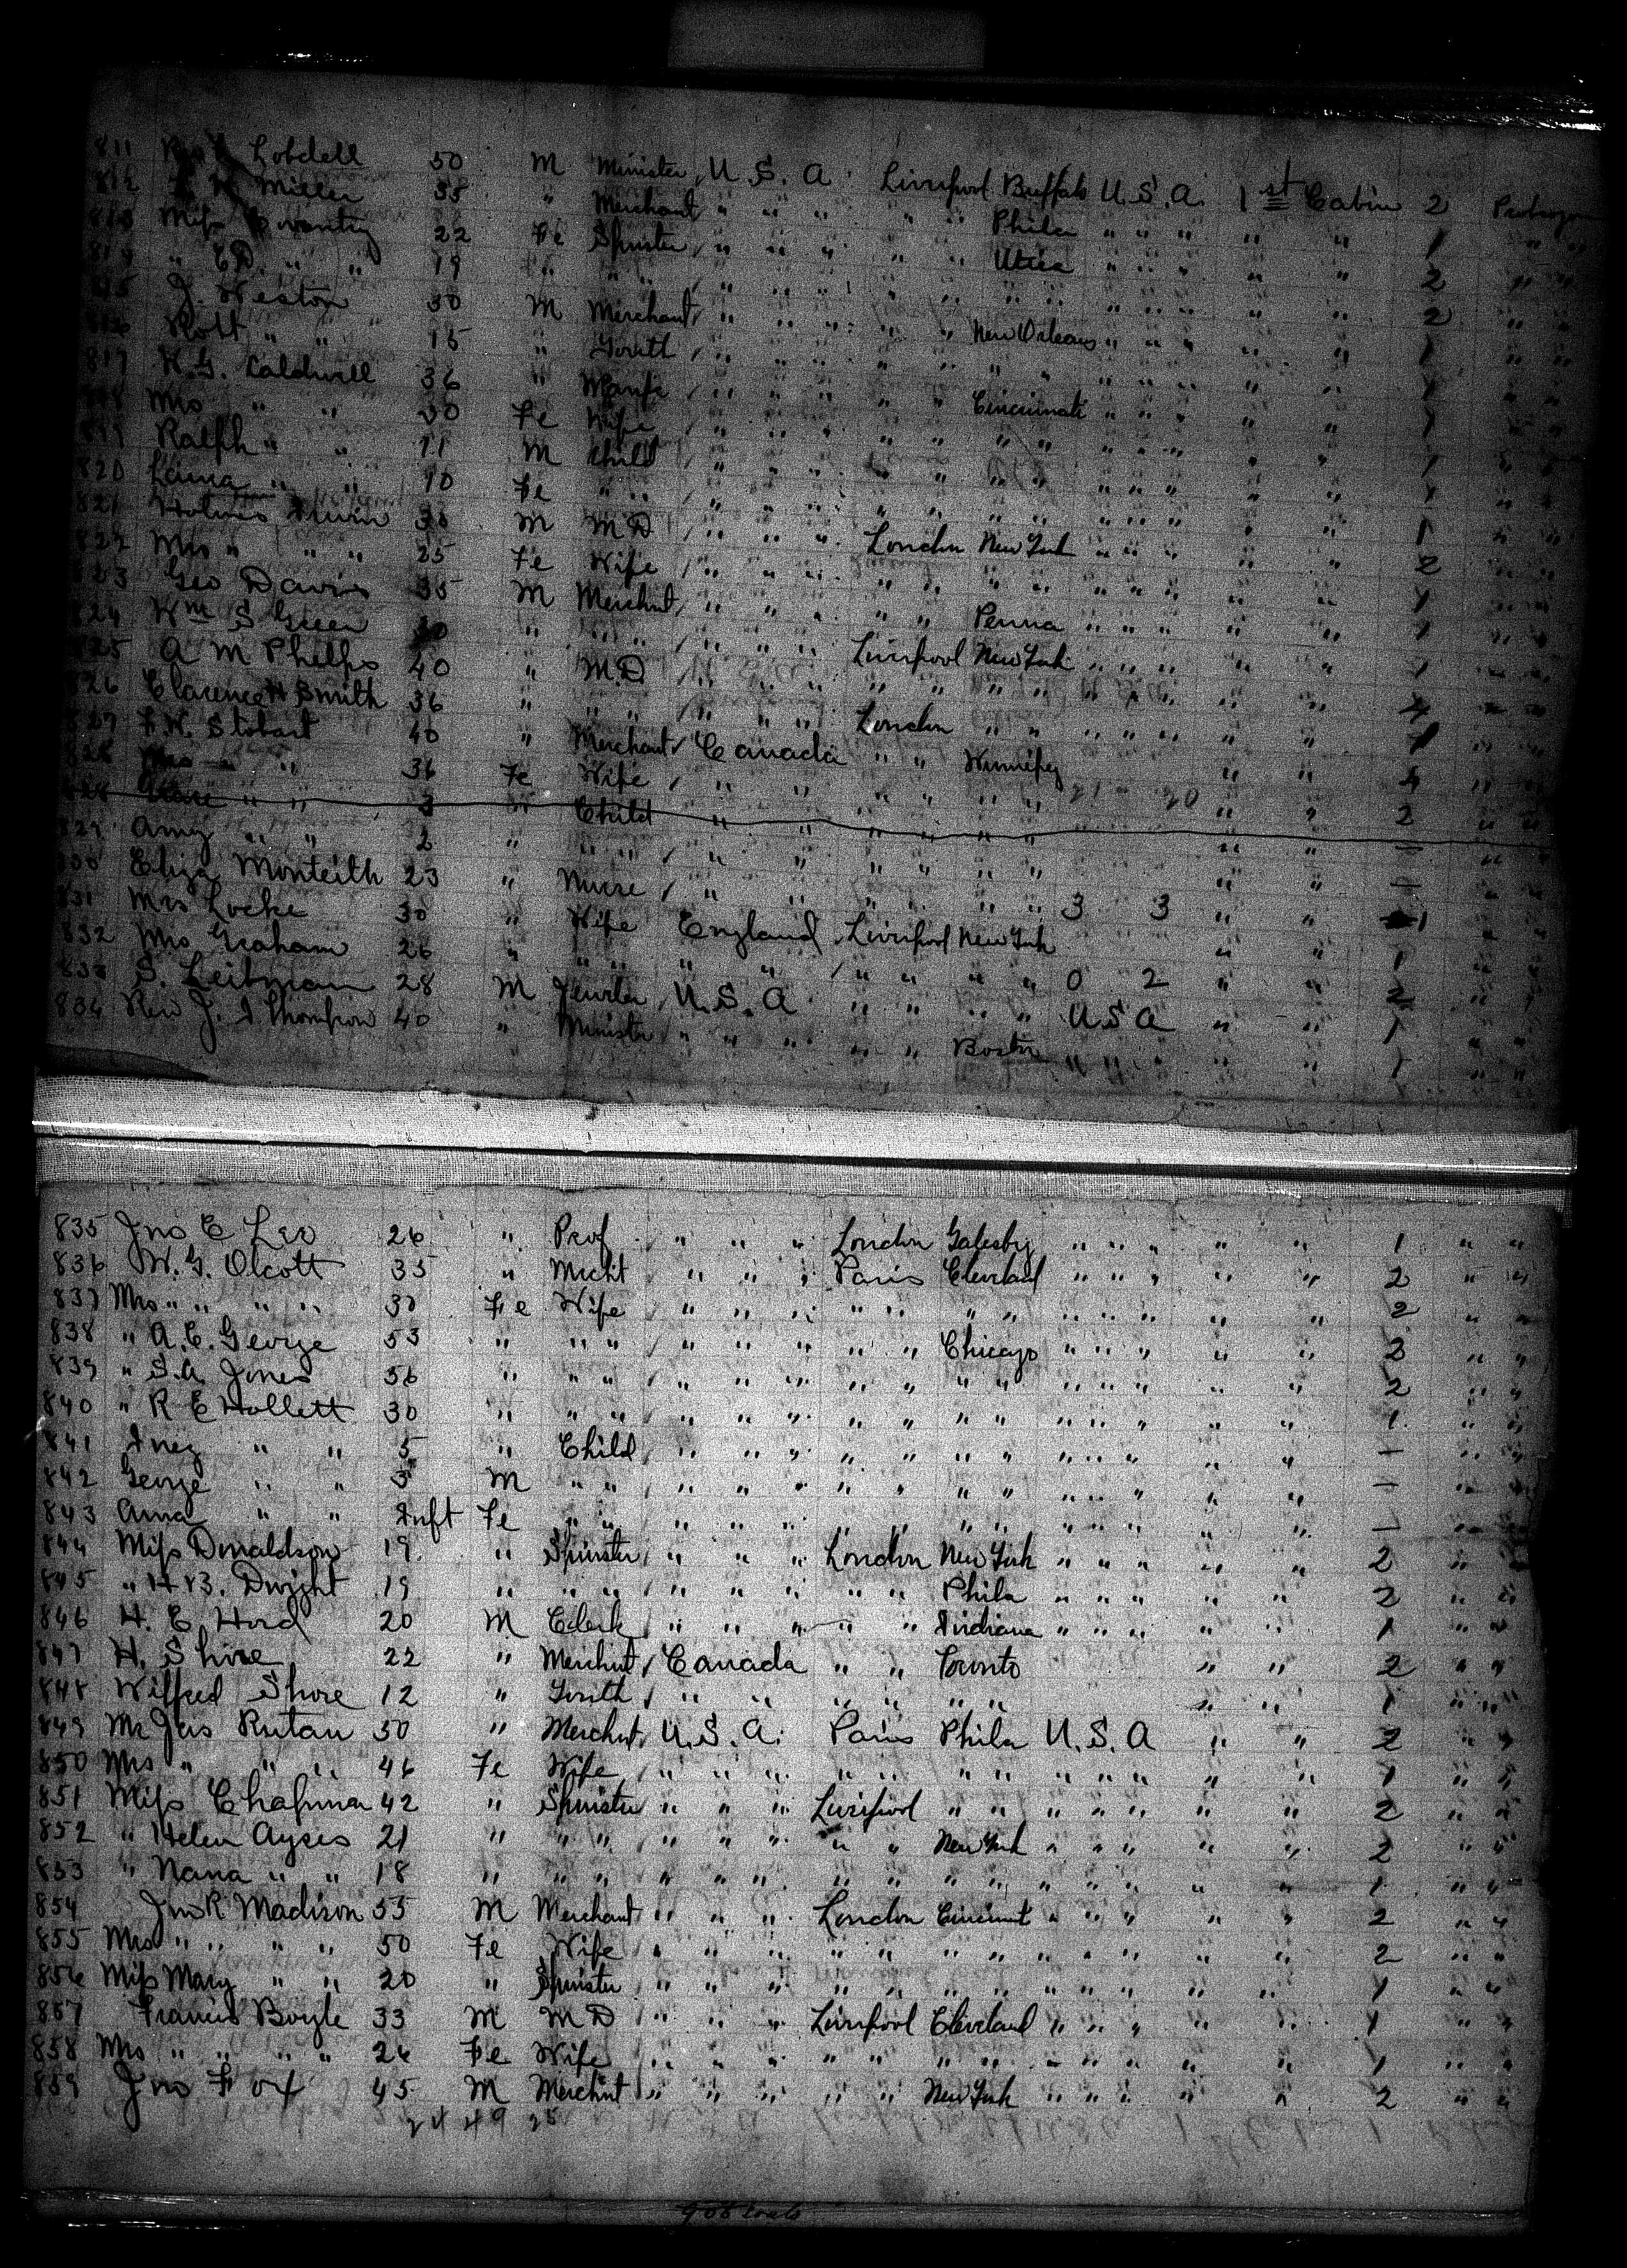 811 Lobdell 50 M Minister U.S.A. Liverpool Buffalo U.S.A. 1st Cabin 2
812 Miller 35 " Merchant " " " " " Phila " " " " " 1 " "
813 Miss Coventry 22 Fe Spinster " " " " " Utica " " " " " 2 " "
" E.D. " " 19 " " " " " " " " " " " " " " " 2 " "
J. Weston 50 M Merchant " " " " " New Orleans " " " " " 1 " "
" " 15 " Youth " " " " " " " " " " " " 1 " "
817 Caldwell 36 " " " " " " Cincinnati " " " " " 1 " "
Mrs " " 30 Fe Wife " " " " " " " " " " " " 1 " "
Ralph " " 11 M Child " " " " " " " " " " " " 1 " "
820 Laura " " 10 Fe " " " " " " " " " " " " " " 1 " "
821 Holmes M M.D " " " London New York " " " " " 2 " "
822 Mrs " " " 25 Fe Wife " " " " " " " " " " " " 1 " "
823 Geo Davis 35 M Merchnt " " " " " Penna " " " " " 1 " "
824 Wm S Green " " " " " " Liverpool New York " " " " " 1 " "
825 A M Phelps 40 " M.D " " " " " " " " " " " " 4 " "
826 Clarence H Smith 36 " " " " " " London " " " " " " " 1 " "
827 Stobart 40 " Merchant Canada " " Winnipeg " " 4 " "
828 Mrs " " 36 Fe Wife " " " " " " 21 20 " " 2 " "
828 " " 3 " Child " " " " " " " " — " "
829 Amy " " 2 " " " " " " " " " " " — " "
830 Eliza Monteith 23 " Nurse " " " " " " 3 3 " " 1 " "
831 Mrs Locke 30 " Wife England Liverpool New York " " 1 " "
832 Mrs Graham 26 " " " " " " " " " 0 2 " " 2 " "
833 S. Leibman 28 M Jeweler U.S.A " " " " U S A " " 1 " "
834 Rev J. Thompson 40 " Minister " " " " " Boston " " " " " 1 " "
835 Jno E Leo 26 " Prof " " " London Galesbrg " " " " " 1 " "
836 W. G. Olcott 35 " Mercht " " " Paris Cleveland " " " " " 2 " "
837 Mrs " " " " 30 Fe Wife " " " " " " " " " " " " 2 " "
838 " A. E. George 53 " " " " " " " " Chicago " " " " " 2 " "
839 " S. A. Jones 56 " " " " " " " " " " " " " " " 2 " "
840 " R E Hollett 30 " " " " " " " " " " " " " " " 1 " "
841 Inez " " 5 " Child " " " " " " " " " " " " — " "
842 George " " 3 M " " " " " " " " " " " " " " — " "
843 Anna " " Inft Fe " " " " " " " " " " " " " " — " "
844 Miss Donaldson 19 " Spinster " " " London New York " " " " " 2 " "
845 " H B. Dwight 19 " " " " " " " " Phila " " " " " 2 " "
846 H. E. Hord 20 M Clerk " " " " " Indiana " " " " " 1 " "
847 H. Shore 22 " Merchnt Canada " " Toronto " " 2 " "
848 Wilfred Shore 12 " Youth " " " " " " " " 1 " "
849 Mr Jas Rutan 50 " Merchnt U.S.A. Paris Phila U.S.A " " 2 " "
850 Mrs " " " 46 Fe Wife " " " " " " " " " " " " 1 " "
851 Miss Chapman 42 " Spinster " " " Liverpool " " " " " " " 2 " "
852 " Helen Ayres 21 " " " " " " " " New York " " " " " 2 " "
853 " Nana " " 18 " " " " " " " " " " " " " " " 1 " "
854 Jno R Madison 55 M Merchant " " " London Cincinnt " " " " " 2 " "
855 Mrs " " " " 50 Fe Wife " " " " " " " " " " " " 2 " "
856 Miss Mary " " 20 " Spinster " " " " " " " " " " " " 1 " "
857 Francis Boyle 33 M M D " " " Liverpool Cleveland " " " " " 1 " "
858 Mrs " " " " 26 Fe Wife " " " " " " " " " " " " 1 " "
859 Jno Fox 45 M Merchnt " " " " " New York " " " " " 2 " "
24 49 25
908 souls